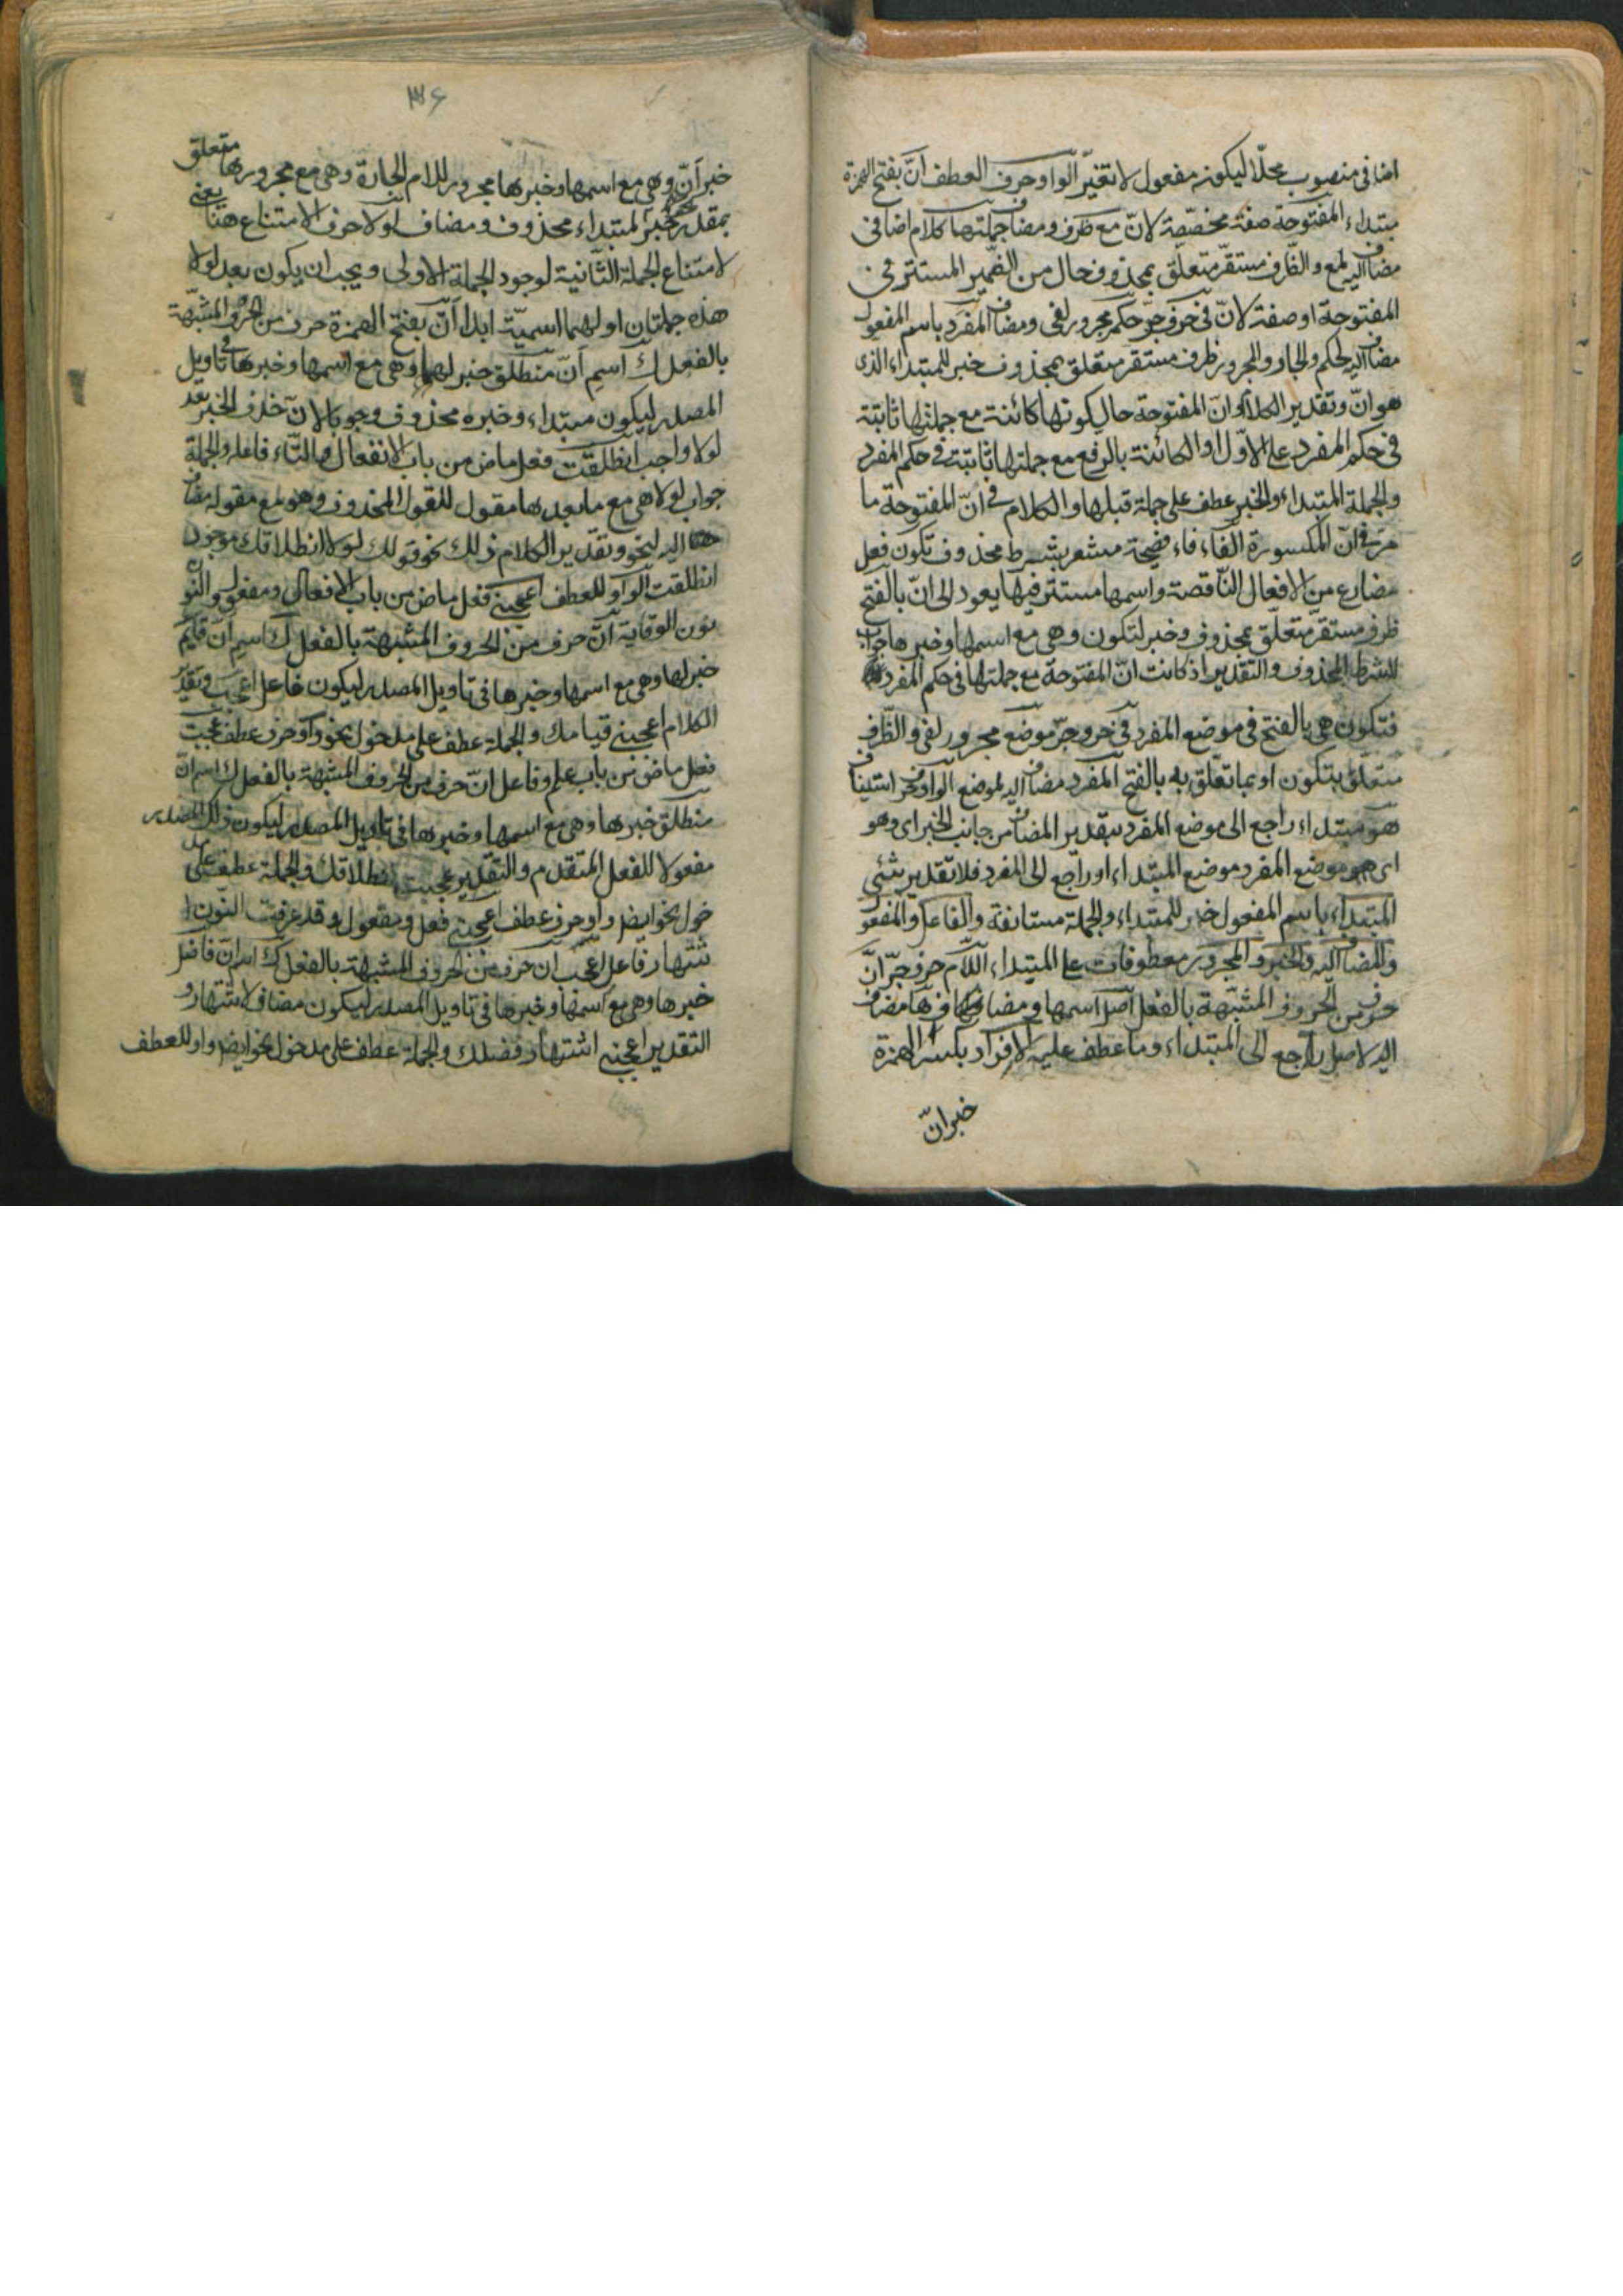 اضافى منصوب محلّا ليكونه مفعول لا تغيّر الواو حرف العطف انّ بفتح الهمزة
مبتداء المفتوحة صفة مخصّصة لانّ مع ظرف ومضاف جملتها كلام اضافى
مضاف اليه لمع والظرف مستقرّ متعلّق بمحذوف حال من الضمير المستتر فى
المفتوحة او صفة لانّ فى حرف جرّ حكم مجرور لفى ومضاف المفرد باسم المفعول
مضاف اليه لحكم والجار والمجرور ظرف مستقر متعلق بمحذوف خبر للمبتداء الذى
هو انّ وتقدير الكلام وانّ المفتوحة حال كونها كائنة مع جملتها ثابتة
فى حكم المفرد على الاوّل والكائنة بالرفع مع جملتها ثابتة فى حكم المفرد
والجملة المبتداء والخبر عطف على جملة قبلها والكلام فى انّ المفتوحة ما
مرّ فى انّ المكسورة الفاء فاء فصيحة مشعر بشرط محذوف تكون فعل
مضارع من الافعال النّاقصة واسمها مستتر فيها يعود الى انّ بالفتح
ظرف مستقرّ متعلّق بمحذوف وخبر لتكون وهى مع اسمها وخبرها جواب
للشرط المحذوف والتقدير اذ كانت انّ المفتوحة مع جملتها فى حكم المفرد
فتكون هى بالفتح فى موضع المفرد فى حروجرّ موضع مجرور لفى والظّرف
متعلّق بتكون او بما تعلّق به بالفتح المفرد مضاف اليه لموضع الواو حرف استيناف
هو مبتداء راجع الى موضع المفرد بتقدير المضاف من جانب الخبر اى وهو
اى هو موضع المفرد موضع المبتداء او راجع الى المفرد فلا تقدير شئى
المبتداء باسم المفعول خبر للمبتداء والجملة مستانفة والفاعل والمفعو
والمضاف اليه والخبر والمجرور معطوفات على المبتداء اللّام حرف جرّ انّ
حرف من الحروف المشبّهة بالفعل اصل اسمها ومضاف ها مضاف
اليه لاصل راجع الى المبتداء وما عطف عليه الافراد بكسر الهمزة
خبر انّ
٣٦
خبر انّ وهى مع اسمها وخبرها مجرور للام الجارة وهى مع مجرورها متعلق
بمقدر خبر لمبتداء محذوف ومضاف لولا حرف الامتناع هنا يعنى
لامتناع الجملة الثّانية لوجود الجملة الاولى ويجب ان يكون بعد لولا
هذه جملتان اولهما اسميّة ابدا انّ بفتح الهمزة حرف من الحروف المشبّهة
بالفعل ك اسم انّ منطلق خبر لها وهى مع اسمها وخبرها فى تاويل
المصدر ليكون مبتداء وخبره محذوف وجوبا لانّ حذف الخبر بعد
لولا واجب انطلقت فعل ماض من باب الانفعال والتّاء فاعله والجملة
جواب لولا هى مع ما بعدها مقول للقول المحذوف وهو مع مقوله مضاف
اليه لنحو وتقدير الكلام ذلك نحو قولك لولا انطلاقك موجود
انطلقت الواو للعطف اعجبنى فعل ماض من باب الافعال ومفعول والنّون
نون الوقاية انّ حرف من الحروف المشبهة بالفعل ك اسم انّ قايم
خبر لها وهى مع اسمها وخبرها فى تاويل المصدر ليكون فاعل اعجب وتقدير
الكلام اعجبنى قيامك والجملة عطف على مدخول نحو واو حرف عطف عجبت
فعل ماض من باب علم وفاعل انّ حرف من الحروف المشبهة بالفعل ك اسم انّ
منطلق خبرها وهى مع اسمها وخبرها فى تاويل المصدر ليكون ذلك المصدر
مفعولا للفعل المتقدم والتقدير عجبت انطلاقك والجملة عطف على مد
خول نحو ايض واو حرف عطف اعجبنى فعل ومفعول وقد عرفت النون ا
شتهار فاعل اعجب ان حرف من الحروف المشبهة بالفعل ك اسم انّ فاضل
خبرها وهى مع اسمها وخبرها فى تاويل المصدر ليكون مضاف لاشتهار و
التقدير اعجبنى اشتهار فضلك والجملة عطف على مدخول نحو ايض واو للعطف